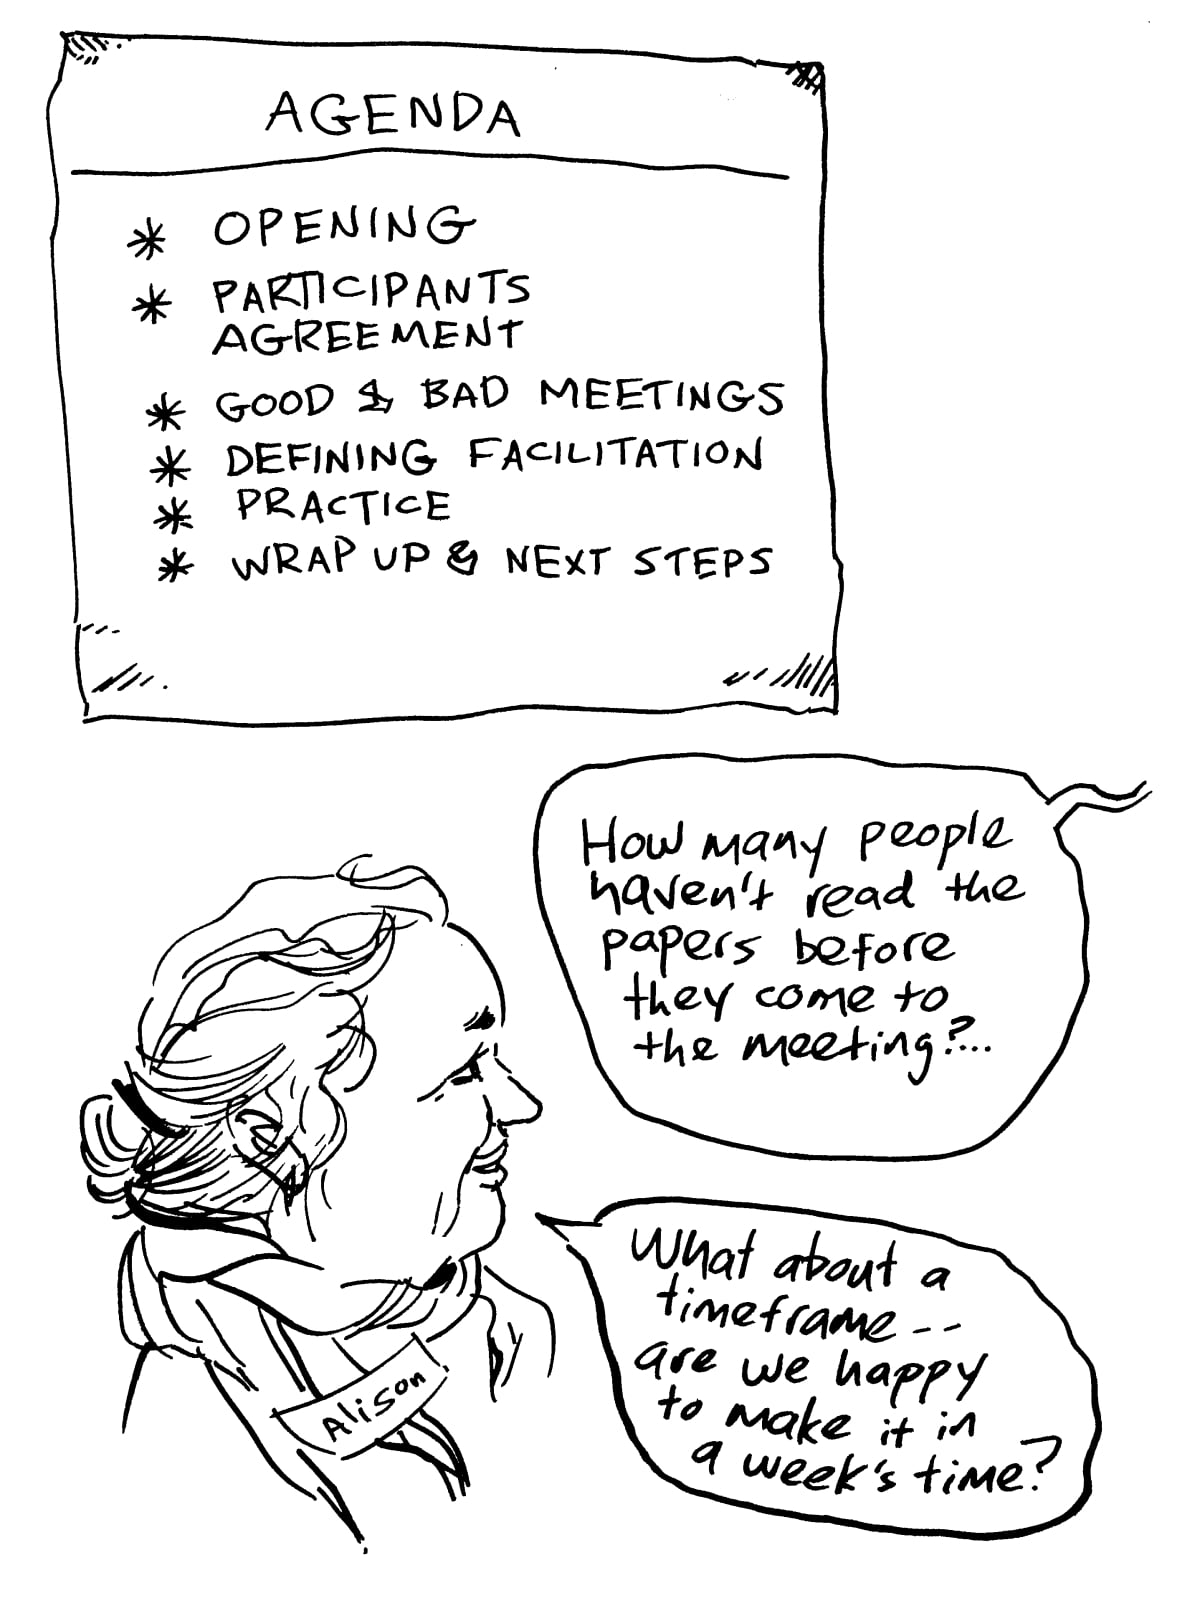 AGENDA
* OPENING
* PARTICIPANTS
AGREEMENT
* GOOD & BAD MEETINGS
* DEFINING FACILITATION
* PRACTICE
* WRAP UP & NEXT STEPS
How many people
haven't read the
papers before
they come to
the meeting?...
What about a
timeframe --
are we happy
to make it in
a week's time?
Alison